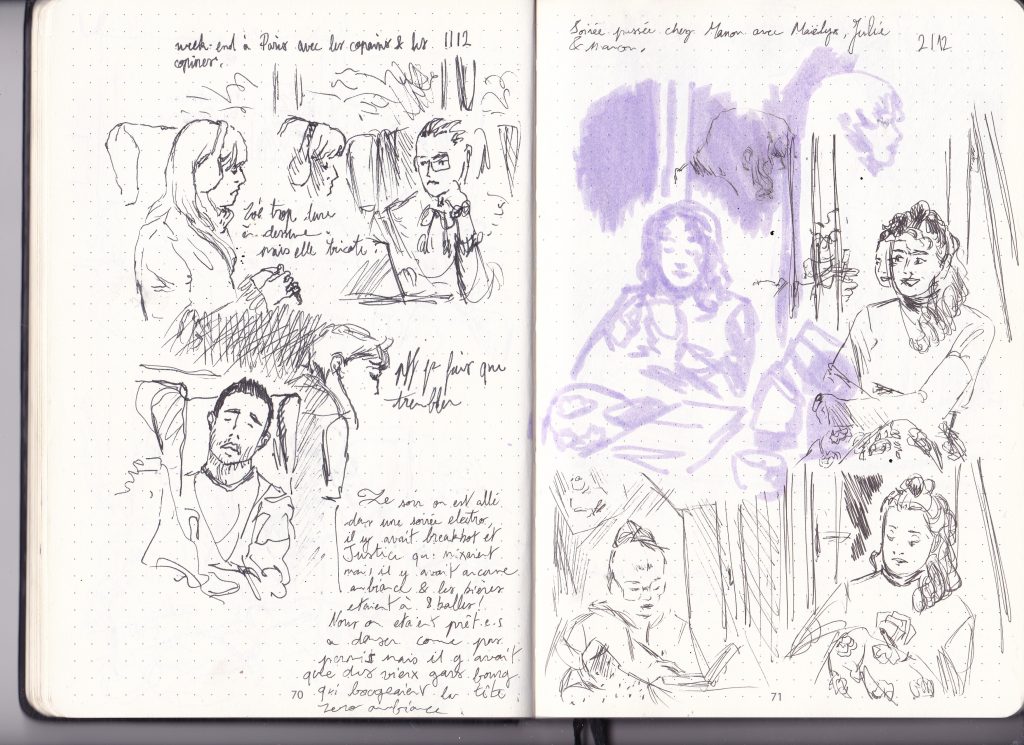 week-end à Paris avec les copains & les 1112
copines.
Zoé trop dure
à dessiner
mais elle tricote.
pff je fais que
trembler
Le soir on est allé
dans une soirée electro,
il y avait breakbot et
Justice qui mixaient
mais il y avait aucune
ambiance & les bières
etaient à 8 balles!
Nous on etaient prêt.e.s
a danser come pas
permis mais il y avait
que des vieux gars bourg
qui bougeaient la tête
zero ambiance.
70
Soirée passée chez Manon avec Maëlys, Julie
& Manon. 2112
71